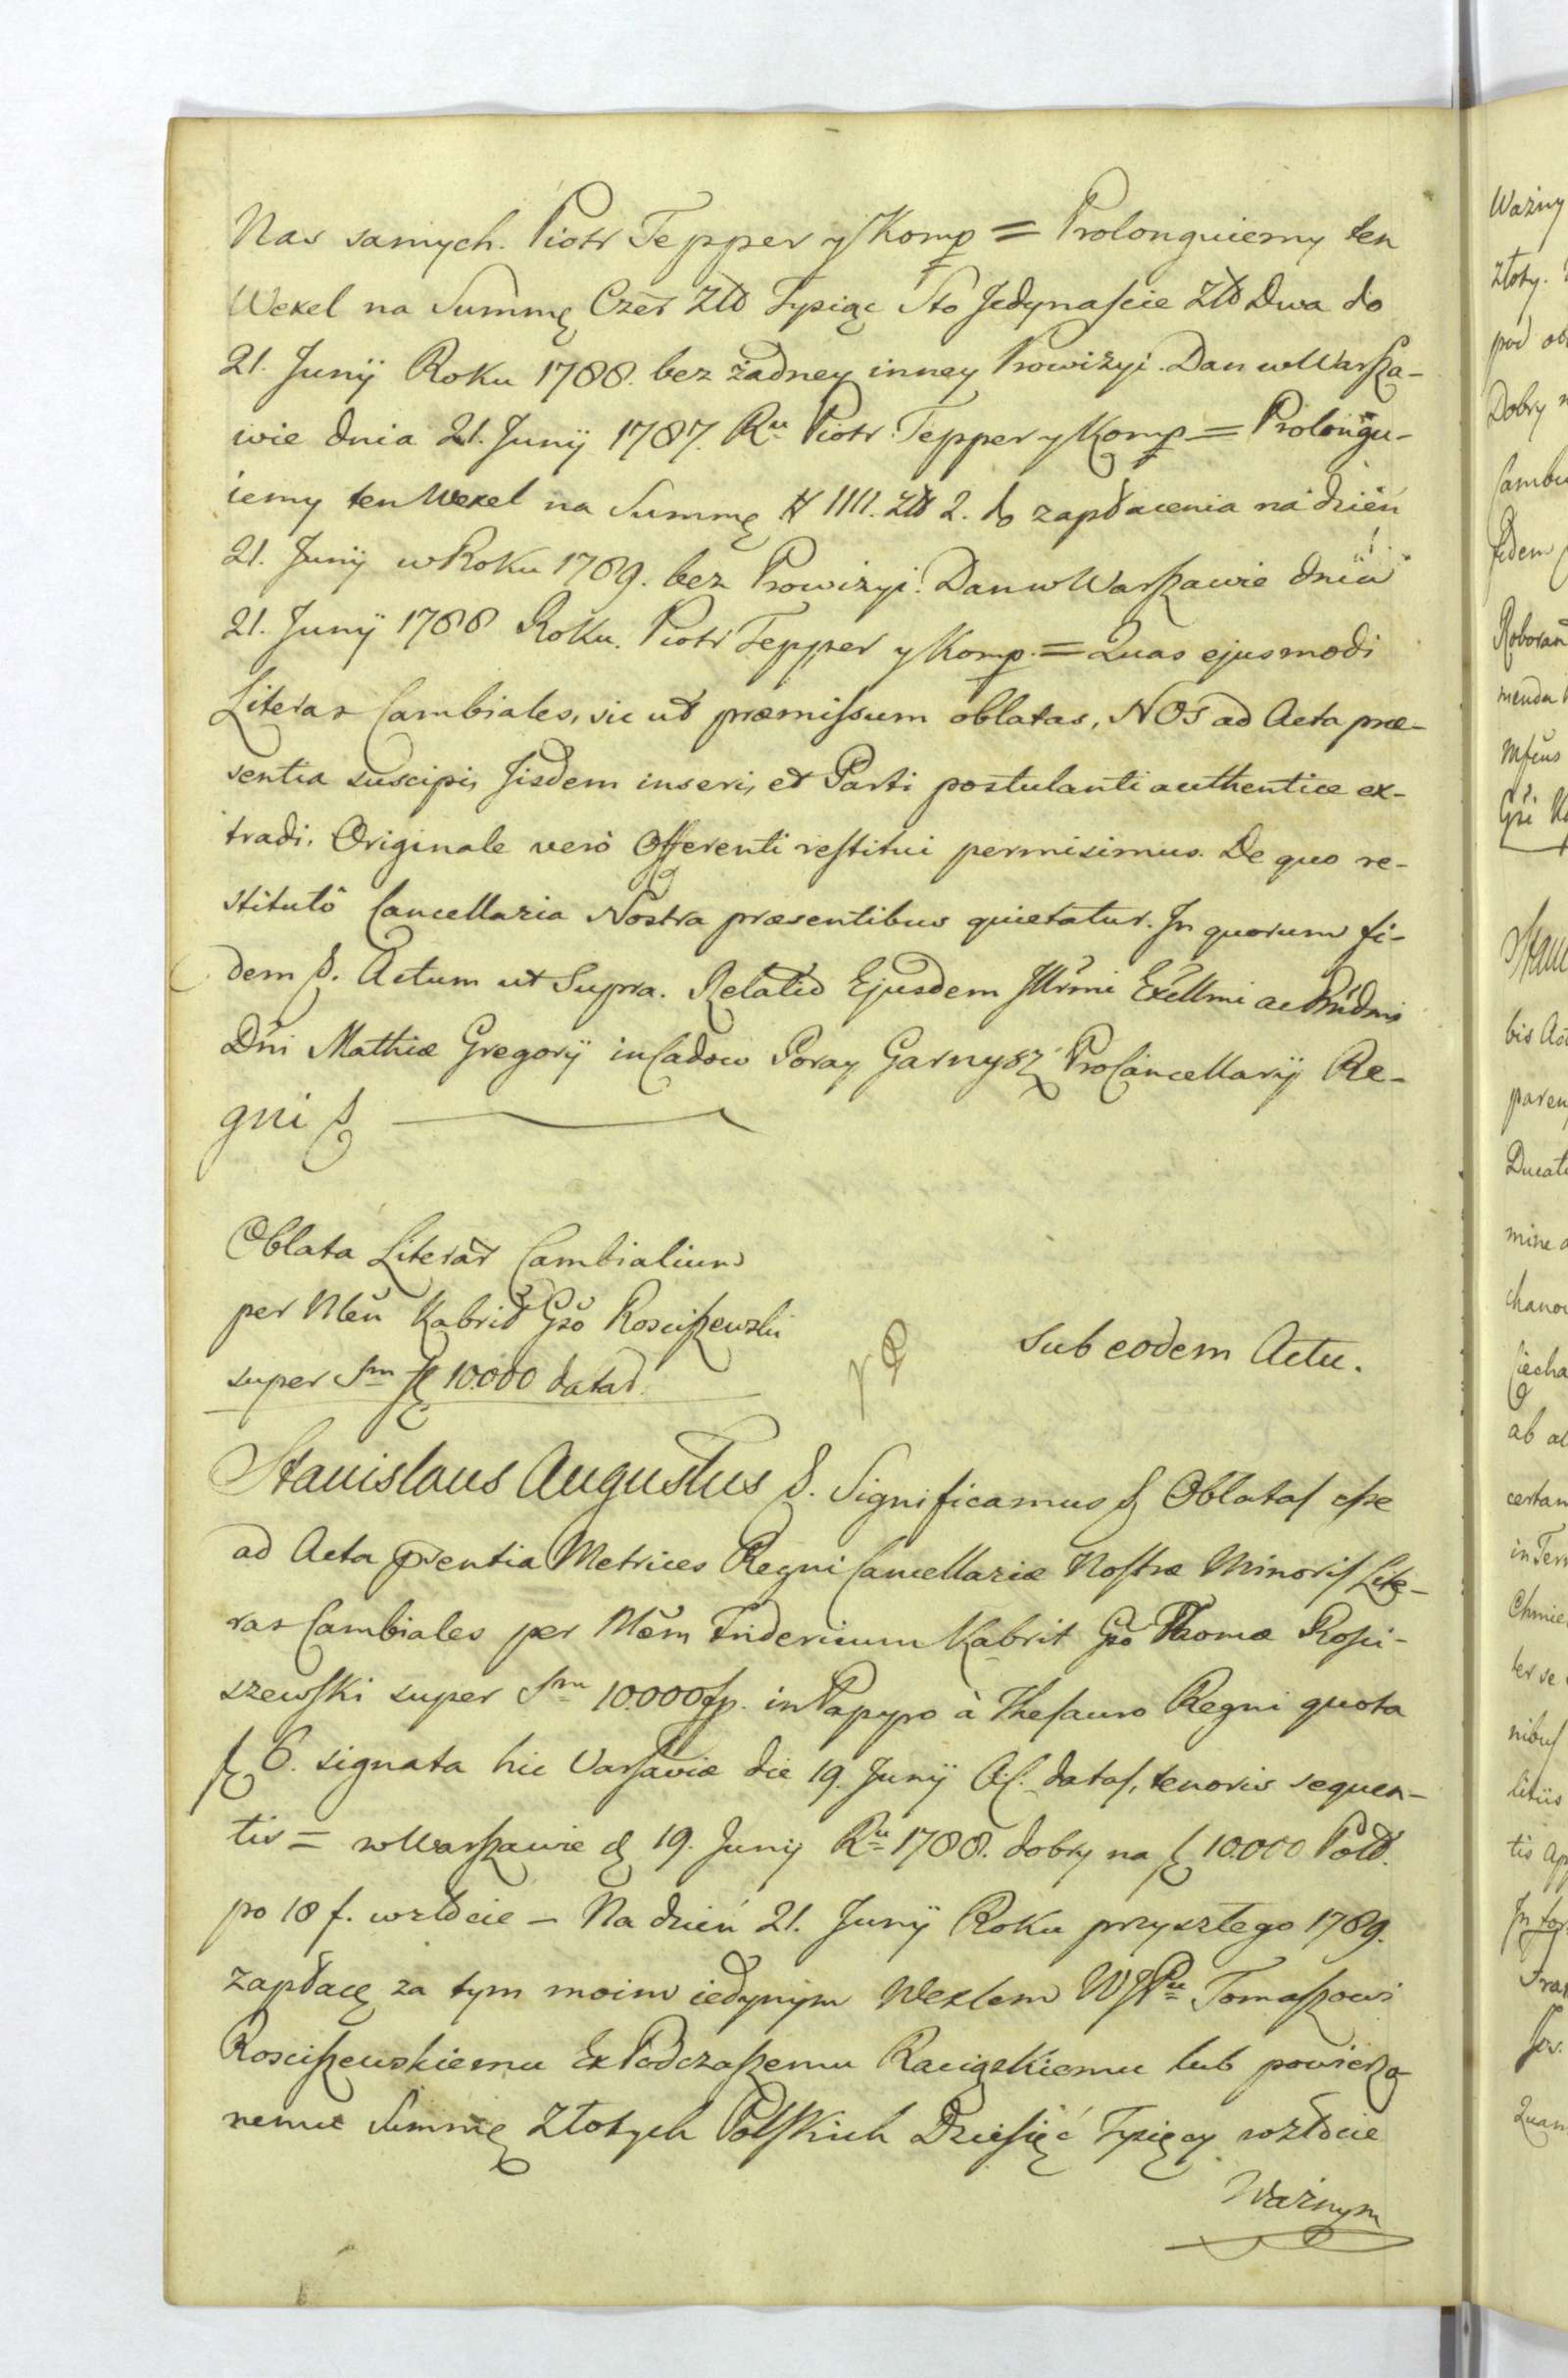 Nas samych. Piotr Tepper y Komp = Prolonguiemy ten
Wexel na Summę Czer Złł Tysiąc Sto Jedynaście Złł Dwa do
21. Junÿ Roku 1788. bez żadney inney Prowizyi. Dan w Warsza-
wie dnia 21. Junÿ 1787. Ru Piotr Tepper y Komp = Prolongu-
iemy ten Wexel na Summę # 1111. Złł 2. do zapłacenia na dzień
21. Junÿ w Roku 1789. bez Prowizyi. Dan w Warszawie dnia
21. Junÿ 1788 Roku. Piotr Tepper y Komp. = Quas ejusmodi
Literas Cambiales, sic ut præmissum oblatas, NOS ad Acta præ-
sentia suscipi, Jisdem inseri, et Parti postulanti authentice ex-
tradi. Originale verò Offerenti restitui permisimus. De quo re-
stitutô Cancellaria Nostra præsentibus quietatur. In quorum fi-
dem &. Actum ut Supra. Relatio Ejusdem Jllrmi Excllmi ac Rndmi
Dni Mathiæ Gregorÿ in Cadow Poray Garnysz ProCancellarÿ Re-
gni &
Oblata Literar Cambialium
per Nlem Kabrit Gso Rosciszewski
super Sm f 10000 datar.
Sub eodem Actu.
Stanislaus Augustus &. Significamus & Oblatas esse
ad Acta prentia Metrices Regni Cancellariæ Nostræ Minoris Lite-
ras Cambiales per Nlem Fridericum Kabrit Gso Thomæ Rosci-
szewski super Sm 10000 fp. in Papyro à Thesauro Regni quota
f 6. signata hic Varsaviæ die 19. Junÿ A.C. datas, tenoris sequen-
tis = w Warszawie d 19. Junÿ Ru 1788. dobry na f 10.000 Pol.
po 18 f. w złocie – Na dzień 21. Junÿ Roku przyszłego 1789.
zapłacę za tym moim iedynym Wexlem WJPu Tomaszowi
Rosciszewskiemu ExPodczaszemu Raciązkiemu lub powierzo-
nemu Summę Złotych Polskich Dziesięć Tysięcy w złocie
Ważnym